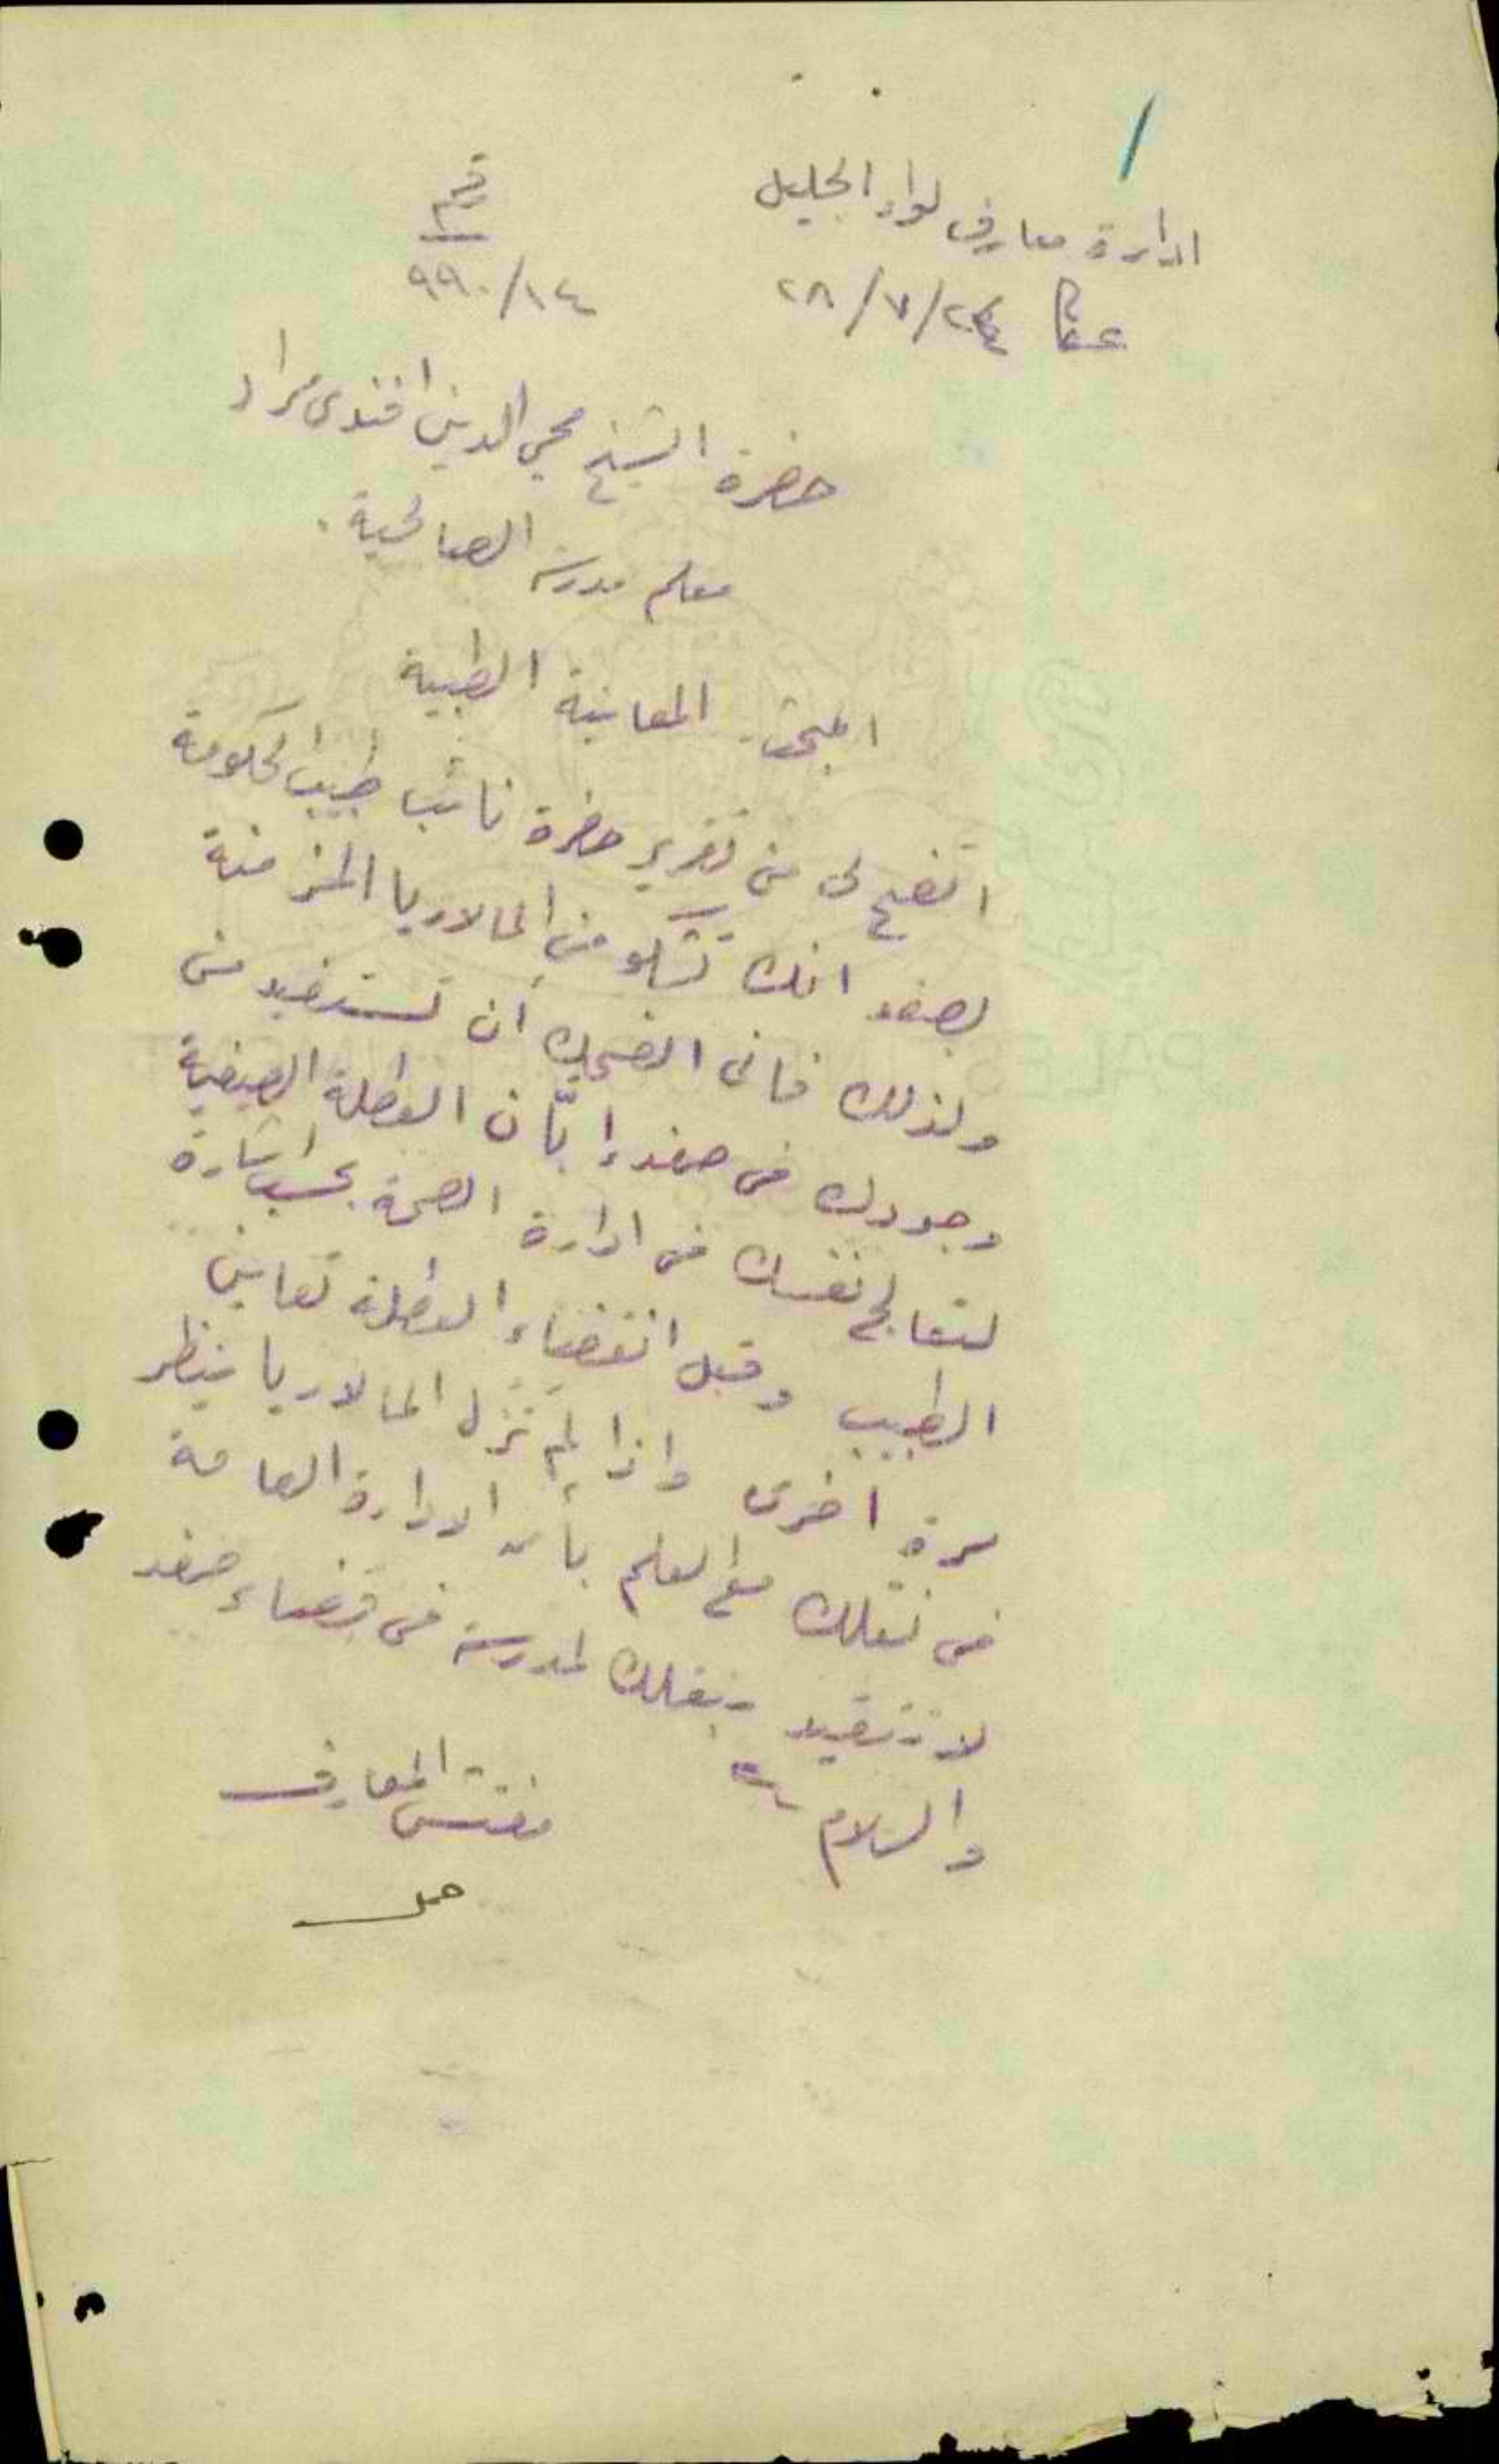 ادارة معارف لواء الجليل
رقم
عكا ٢٤/٧/٢٨
٩٩٠/١٤
حضرة الشيخ محي الدين افندي مراد
معلم مدرسة الصالحية.
المبحث المعاينة الطبية
اتضح لي من تقرير حضرة نائب طبيب الحكومة
بصفد انك تشكو من الملاريا المزمنة
ولذلك فاني انصحك أن تستفيد من
وجودك في صفد إبّان العطلة الصيفية
لتعالج نفسك في ادارة الصحة بحسب اشارة
الطبيب وقبل انقضاء العطلة تعاين
مرة اخرى واذا لم تزل المالاريا ينظر
في نقلك مع العلم بأن الادارة العامة
لا تتقيد بنقلك لمدرسة في قضاء صفد
والسلام
مفتش المعارف